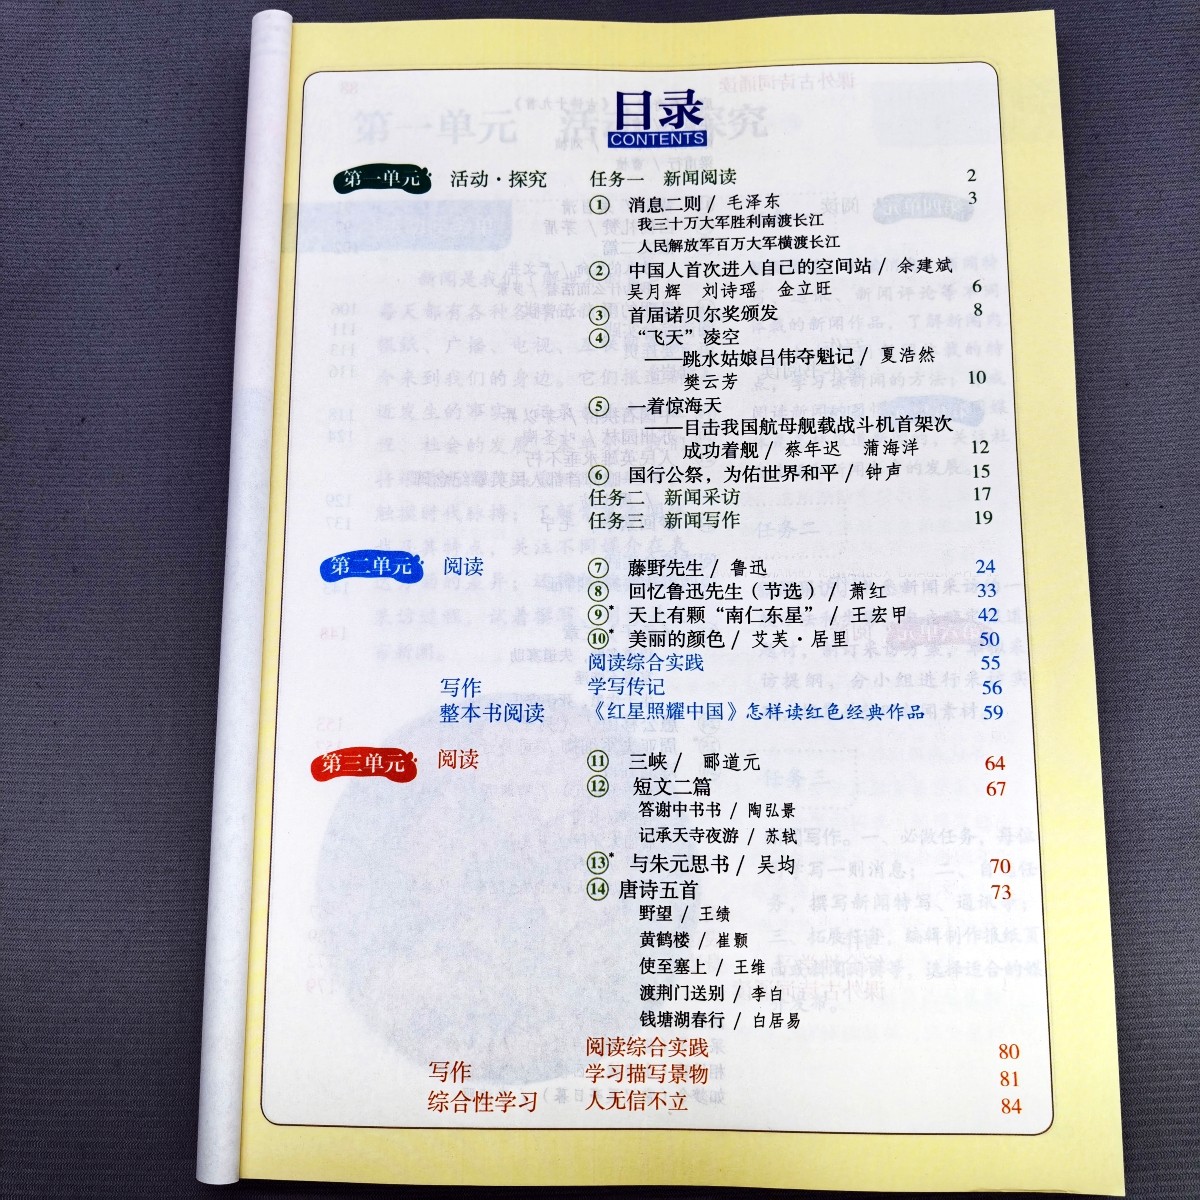 目录
CONTENTS
第一单元 活动·探究 任务一 新闻阅读 2
1 消息二则 / 毛泽东 3
我三十万大军胜利南渡长江
人民解放军百万大军横渡长江
2 中国人首次进入自己的空间站 / 余建斌
吴月辉 刘诗瑶 金立旺 6
3 首届诺贝尔奖颁发 8
4 “飞天”凌空
——跳水姑娘吕伟夺魁记 / 夏浩然
樊云芳 10
5 一着惊海天
——目击我国航母舰载战斗机首架次
成功着舰 / 蔡年迟 蒲海洋 12
6 国行公祭，为佑世界和平 / 钟声 15
任务二 新闻采访 17
任务三 新闻写作 19
第二单元 阅读 7 藤野先生 / 鲁迅 24
8 回忆鲁迅先生（节选） / 萧红 33
9* 天上有颗“南仁东星” / 王宏甲 42
10* 美丽的颜色 / 艾芙·居里 50
阅读综合实践 55
写作 学写传记 56
整本书阅读 《红星照耀中国》怎样读红色经典作品 59
第三单元 阅读 11 三峡 / 郦道元 64
12 短文二篇 67
答谢中书书 / 陶弘景
记承天寺夜游 / 苏轼
13* 与朱元思书 / 吴均 70
14 唐诗五首 73
野望 / 王绩
黄鹤楼 / 崔颢
使至塞上 / 王维
渡荆门送别 / 李白
钱塘湖春行 / 白居易
阅读综合实践 80
写作 学习描写景物 81
综合性学习 人无信不立 84